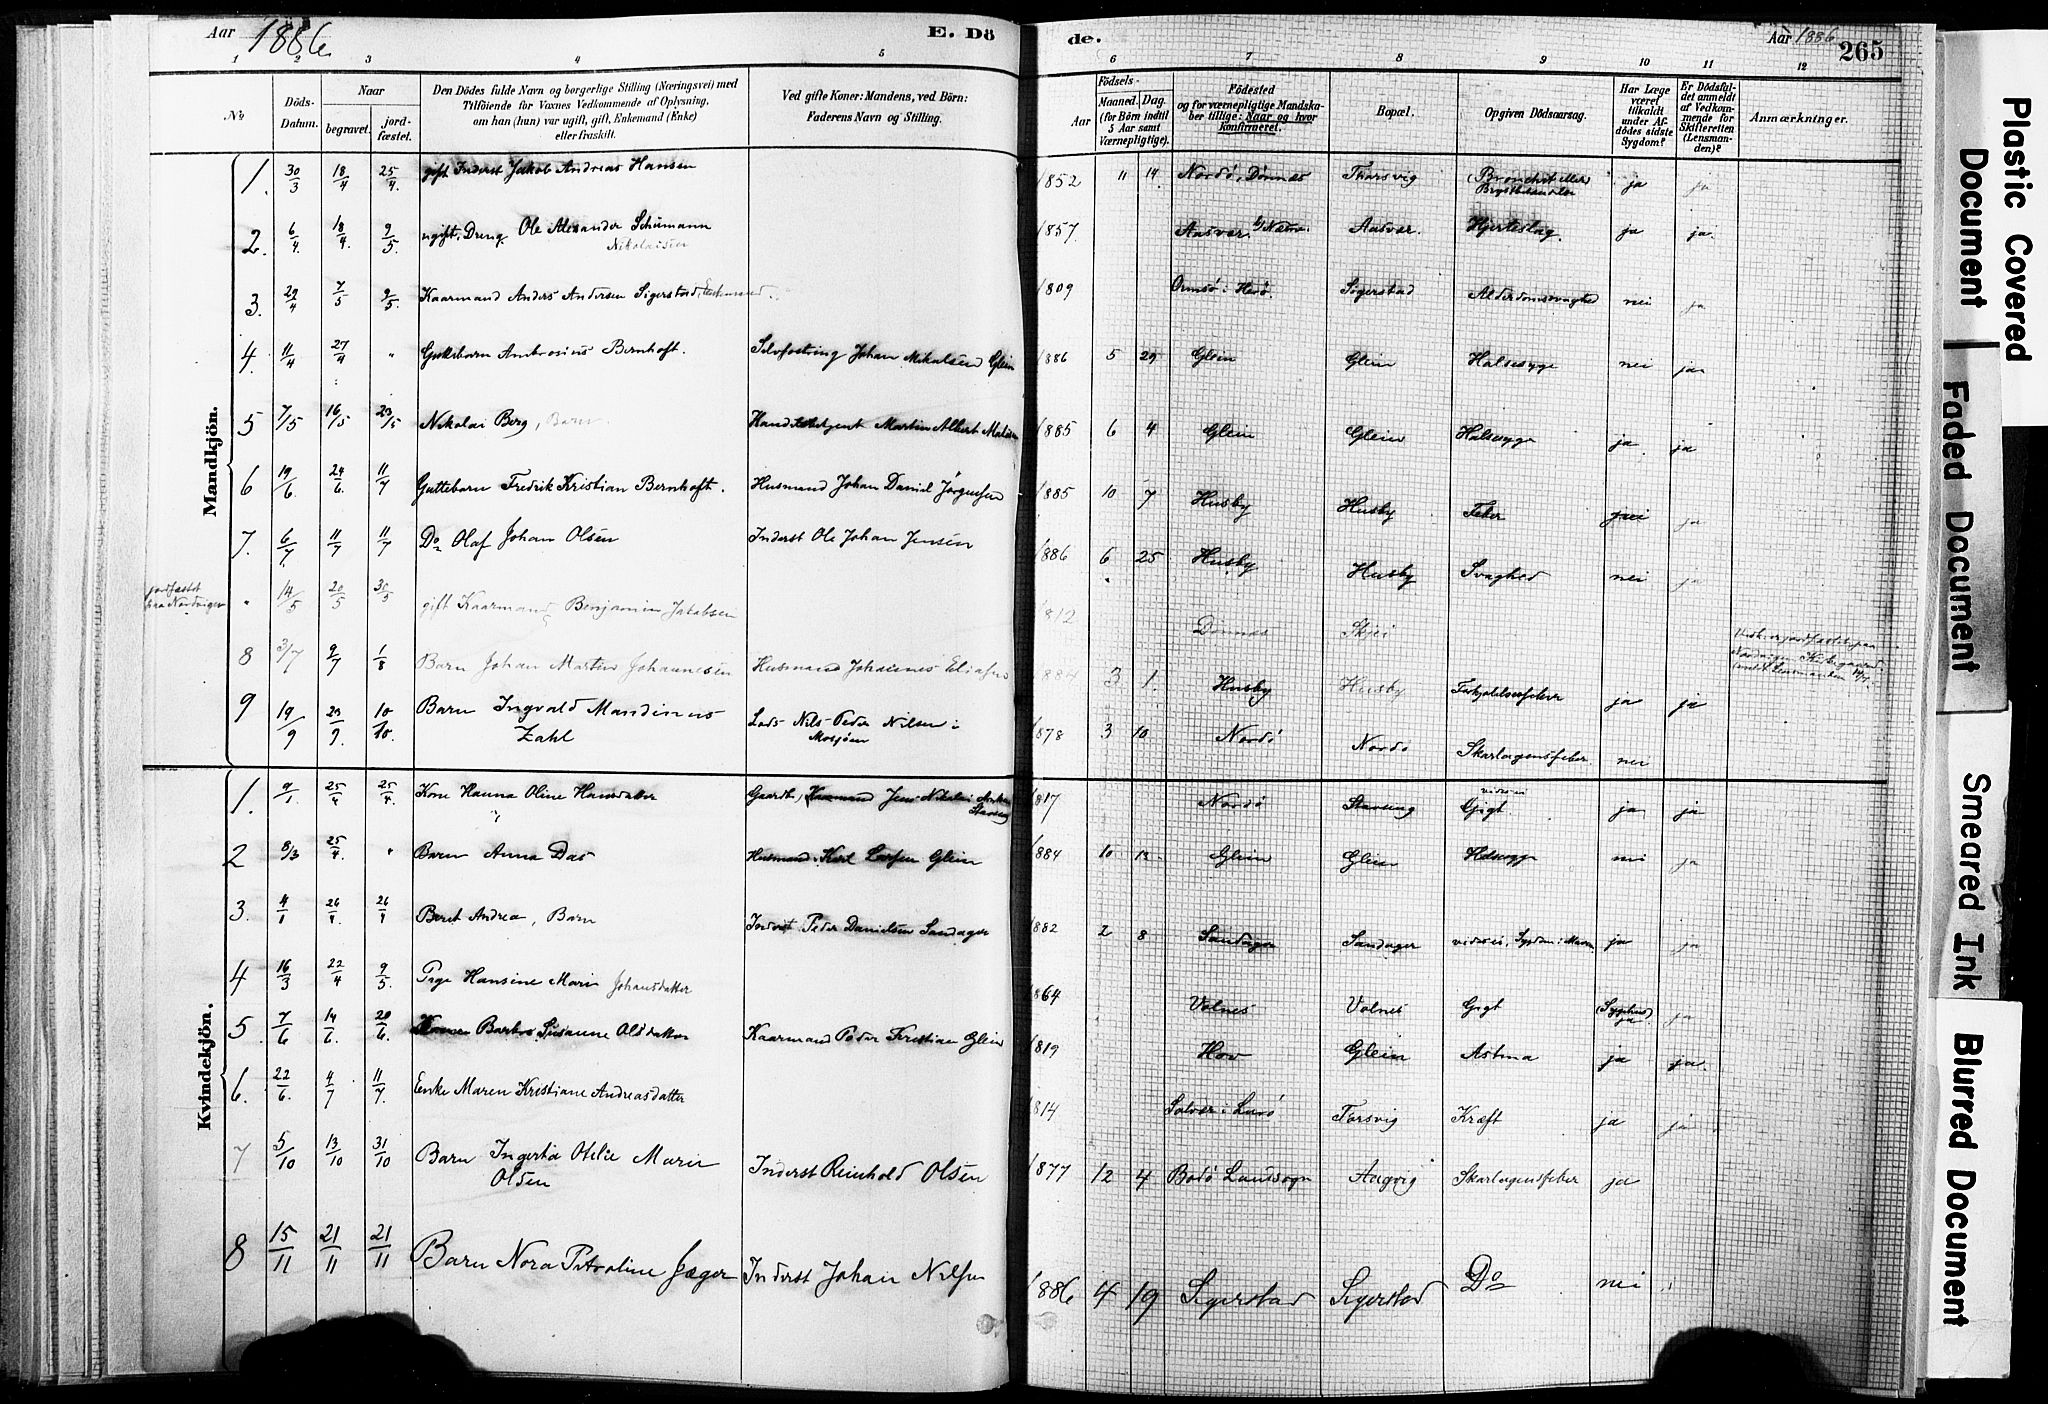 Aar 1886
E. Dö
de.
Aar 1886
265
1 2 3 4 5 6 7 8 9 10 11 12
No
Döds-Datum.
Naar
begravet.
jord-fæstet.
Den Dödes fulde Navn og borgerlige Stilling (Næringsvei) med
Tilföiende for Voxnes Vedkommende af Oplysning,
om han (hun) var ugift, gift, Enkemand (Enke)
eller fraskilt.
Ved gifte Koner: Mandens, ved Börn:
Faderens Navn og Stilling.
Födsels-
Aar
Maaned. Dag.
(for Börn indtil
5 Aar samt
Værnepligtige).
Födested
og for værnepligtige Mandska-
ber tillige: Naar og hvor
konfirmeret.
Bopæl.
Opgiven Dödsaarsag.
Har Læge
været
tilkaldt
under Af-
dödes sidste
Sygdom?
Er Dödsfal-
det anmeldt
af Vedkom-
mende for
Skifteretten
(Lensman-
den)?
Anmærkninger.
Mandkjön.
1. 30/3 18/4 25/4 gift Inderst Jakob Andreas Hansen 1852 11 14 Nordö, Dönnæs Thorsvig (Bronchit eller ja ja
2. 6/4 18/4 9/5 ugift Dreng Ole Alexander Schumann 1857 Aasvær Aasvær Hjerteslag. ja ja.
Nikolaisen
3. 29/4 7/5 9/5 Kaarmand Anders Andersen Sigerstad, Enkemand. 1809 Ormsö i Herö. Sigerstad Alderdomssvaghed nei ja
4. 11/4 27/4 " Guttebarn Ambrosius Bernhoft. Selvfostring Johan Mikalsen Glein 1886 5 29 Glein Glein Halsesyge nei ja
5 7/5 16/5 23/5 Nikolai Berg, Barn. Martin Albert 1885 6 4 Glein Glein Halsesyge ja ja
6 19/6 24/6 11/7 Guttebarn Fredrik Kristian Bernhoft. Husmand Johan Daniel Jørgensen 1885 10 7 Husby Husby Feber ja
7. 6/7 11/7 11/7 Do Olaf Johan Olsen Inderst Ole Johan Jensen 1886 6 25 Husby Husby Svaghed nei ja
jordfæstet
fra Nordvigen " 14/5 20/5 30/5 gift Kaarmand Benjamin Jakobsen 1812 Dönnæs Skjei
8 3/7 9/7 1/8 Barn Johan Martin Johannesen Husmand Johannes Eliasen 1884 3 1. Husby Husby Forkjölelsesfeber ja ja
9 19/9 29/9. 10/10. Barn Ingvald Mandinus Lods Nils Peder Nilsen i 1878 3 10 Nordö Nordö Skarlagensfeber. nei
Zahl Mosjöen
Kvindekjön.
1. 9/1. 25/4 25/4. Kone Hanna Oline Hansdatter Gaardb. Kaarmand Jens Nikolai 1817 Nordö Stavseng Gigt. ja ja
2 8/3 25/4. " Barn Anna Das Husmand Karl Larsen Glein 1884 10 12 Glein Glein Halsesyge nei ja
3. Beret Andrea, Barn Inderst Peder Danielsen Sandager 1882 2 8 Sandager Sandager Sygdom i Maven ja ja
4 16/3 22/4 9/5 Pige Hansine Marie Johansdatter 1864 Valnes Valnes Gigt (Sygehus) ja. ja
5. 7/6 14/6. 20/6. Barbro Susanne Olsdatter Kaarmand Peder Kristian Glein 1819 Hov Glein Astma ja ja.
6. 22/6. 4/7 11/7. Enke Maren Kristiane Andreasdatter 1814 Solvær i Lurö Torsvig Kræft ja ja
7 5/10 13/10 31/10 Barn Ingerta Otelie Marie Inderst Reinhold Olsen 1877 12 4 Bodö Landsogn Aagvig Skarlagensfeber ja
Olsen
8 15/11 21/11 21/11 Barn Nora Petroline Jæger Inderst Johan Nilsen 1886 4 19 Sigerstad Sigerstad Do nei
Plastic Covered
Document
Faded Document
Smeared Ink
Blurred Document